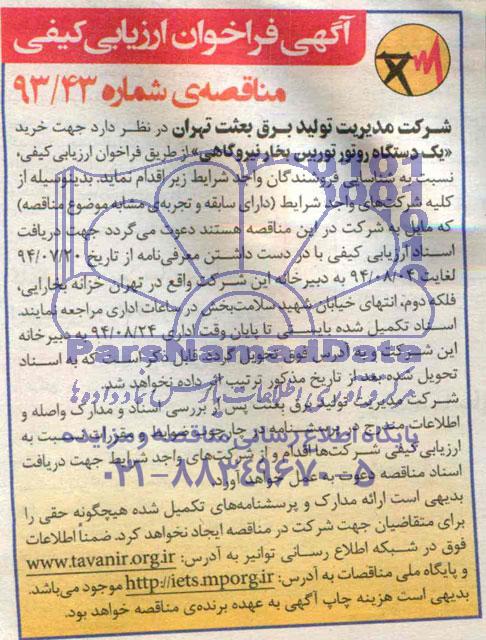 آگهی فراخوان ارزیابی کیفی
مناقصه‌ی شماره ۹۳/۴۳
شرکت مدیریت تولید برق بعثت تهران در نظر دارد جهت خرید
«یک دستگاه روتور توربین بخار نیروگاهی» از طریق فراخوان ارزیابی کیفی،
نسبت به شناسایی فروشندگان واجد شرایط زیر اقدام نماید. بدینوسیله از
کلیه شرکت‌های واجد شرایط (دارای سابقه و تجربه‌ی مشابه موضوع مناقصه)
که مایل به شرکت در این مناقصه هستند دعوت می‌گردد جهت دریافت
اسناد ارزیابی کیفی با در دست داشتن معرفی‌نامه از تاریخ ۹۴/۰۷/۲۰
لغایت ۹۴/۰۸/۰۴ به دبیرخانه این شرکت واقع در تهران خزانه بخارایی،
فلکه دوم، انتهای خیابان شهید سلامت‌بخش در ساعات اداری مراجعه نمایند.
اسناد تکمیل شده بایستی تا پایان وقت اداری ۹۴/۰۸/۲۴ به دبیرخانه
این شرکت و به آدرس فوق تحویل گردد. قابل ذکر است که به اسناد
تحویل شده بعد از تاریخ مذکور ترتیب اثر داده نخواهد شد.
شرکت مدیریت تولید برق بعثت پس از بررسی اسناد و مدارک واصله و
اطلاعات مندرج در پرسشنامه در چارچوب ضوابط و مقررات نسبت به
ارزیابی کیفی شرکت‌ها اقدام و از شرکت‌های واجد شرایط جهت دریافت
اسناد مناقصه دعوت به عمل خواهد آورد.
بدیهی است ارائه مدارک و پرسشنامه‌های تکمیل شده هیچگونه حقی را
برای متقاضیان جهت شرکت در مناقصه ایجاد نخواهد کرد. ضمناً اطلاعات
فوق در شبکه اطلاع رسانی توانیر به آدرس: www.tavanir.org.ir
و پایگاه ملی مناقصات به آدرس: http://iets.mporg.ir موجود می‌باشد.
بدیهی است هزینه چاپ آگهی به عهده برنده‌ی مناقصه خواهد بود.
ParsNamadData
مرکز فرآوری اطلاعات پارس نماد داده‌ها
پایگاه اطلاع رسانی مناقصه و مزایده
۰۲۱-۸۸۳۴۹۶۷۰-۵